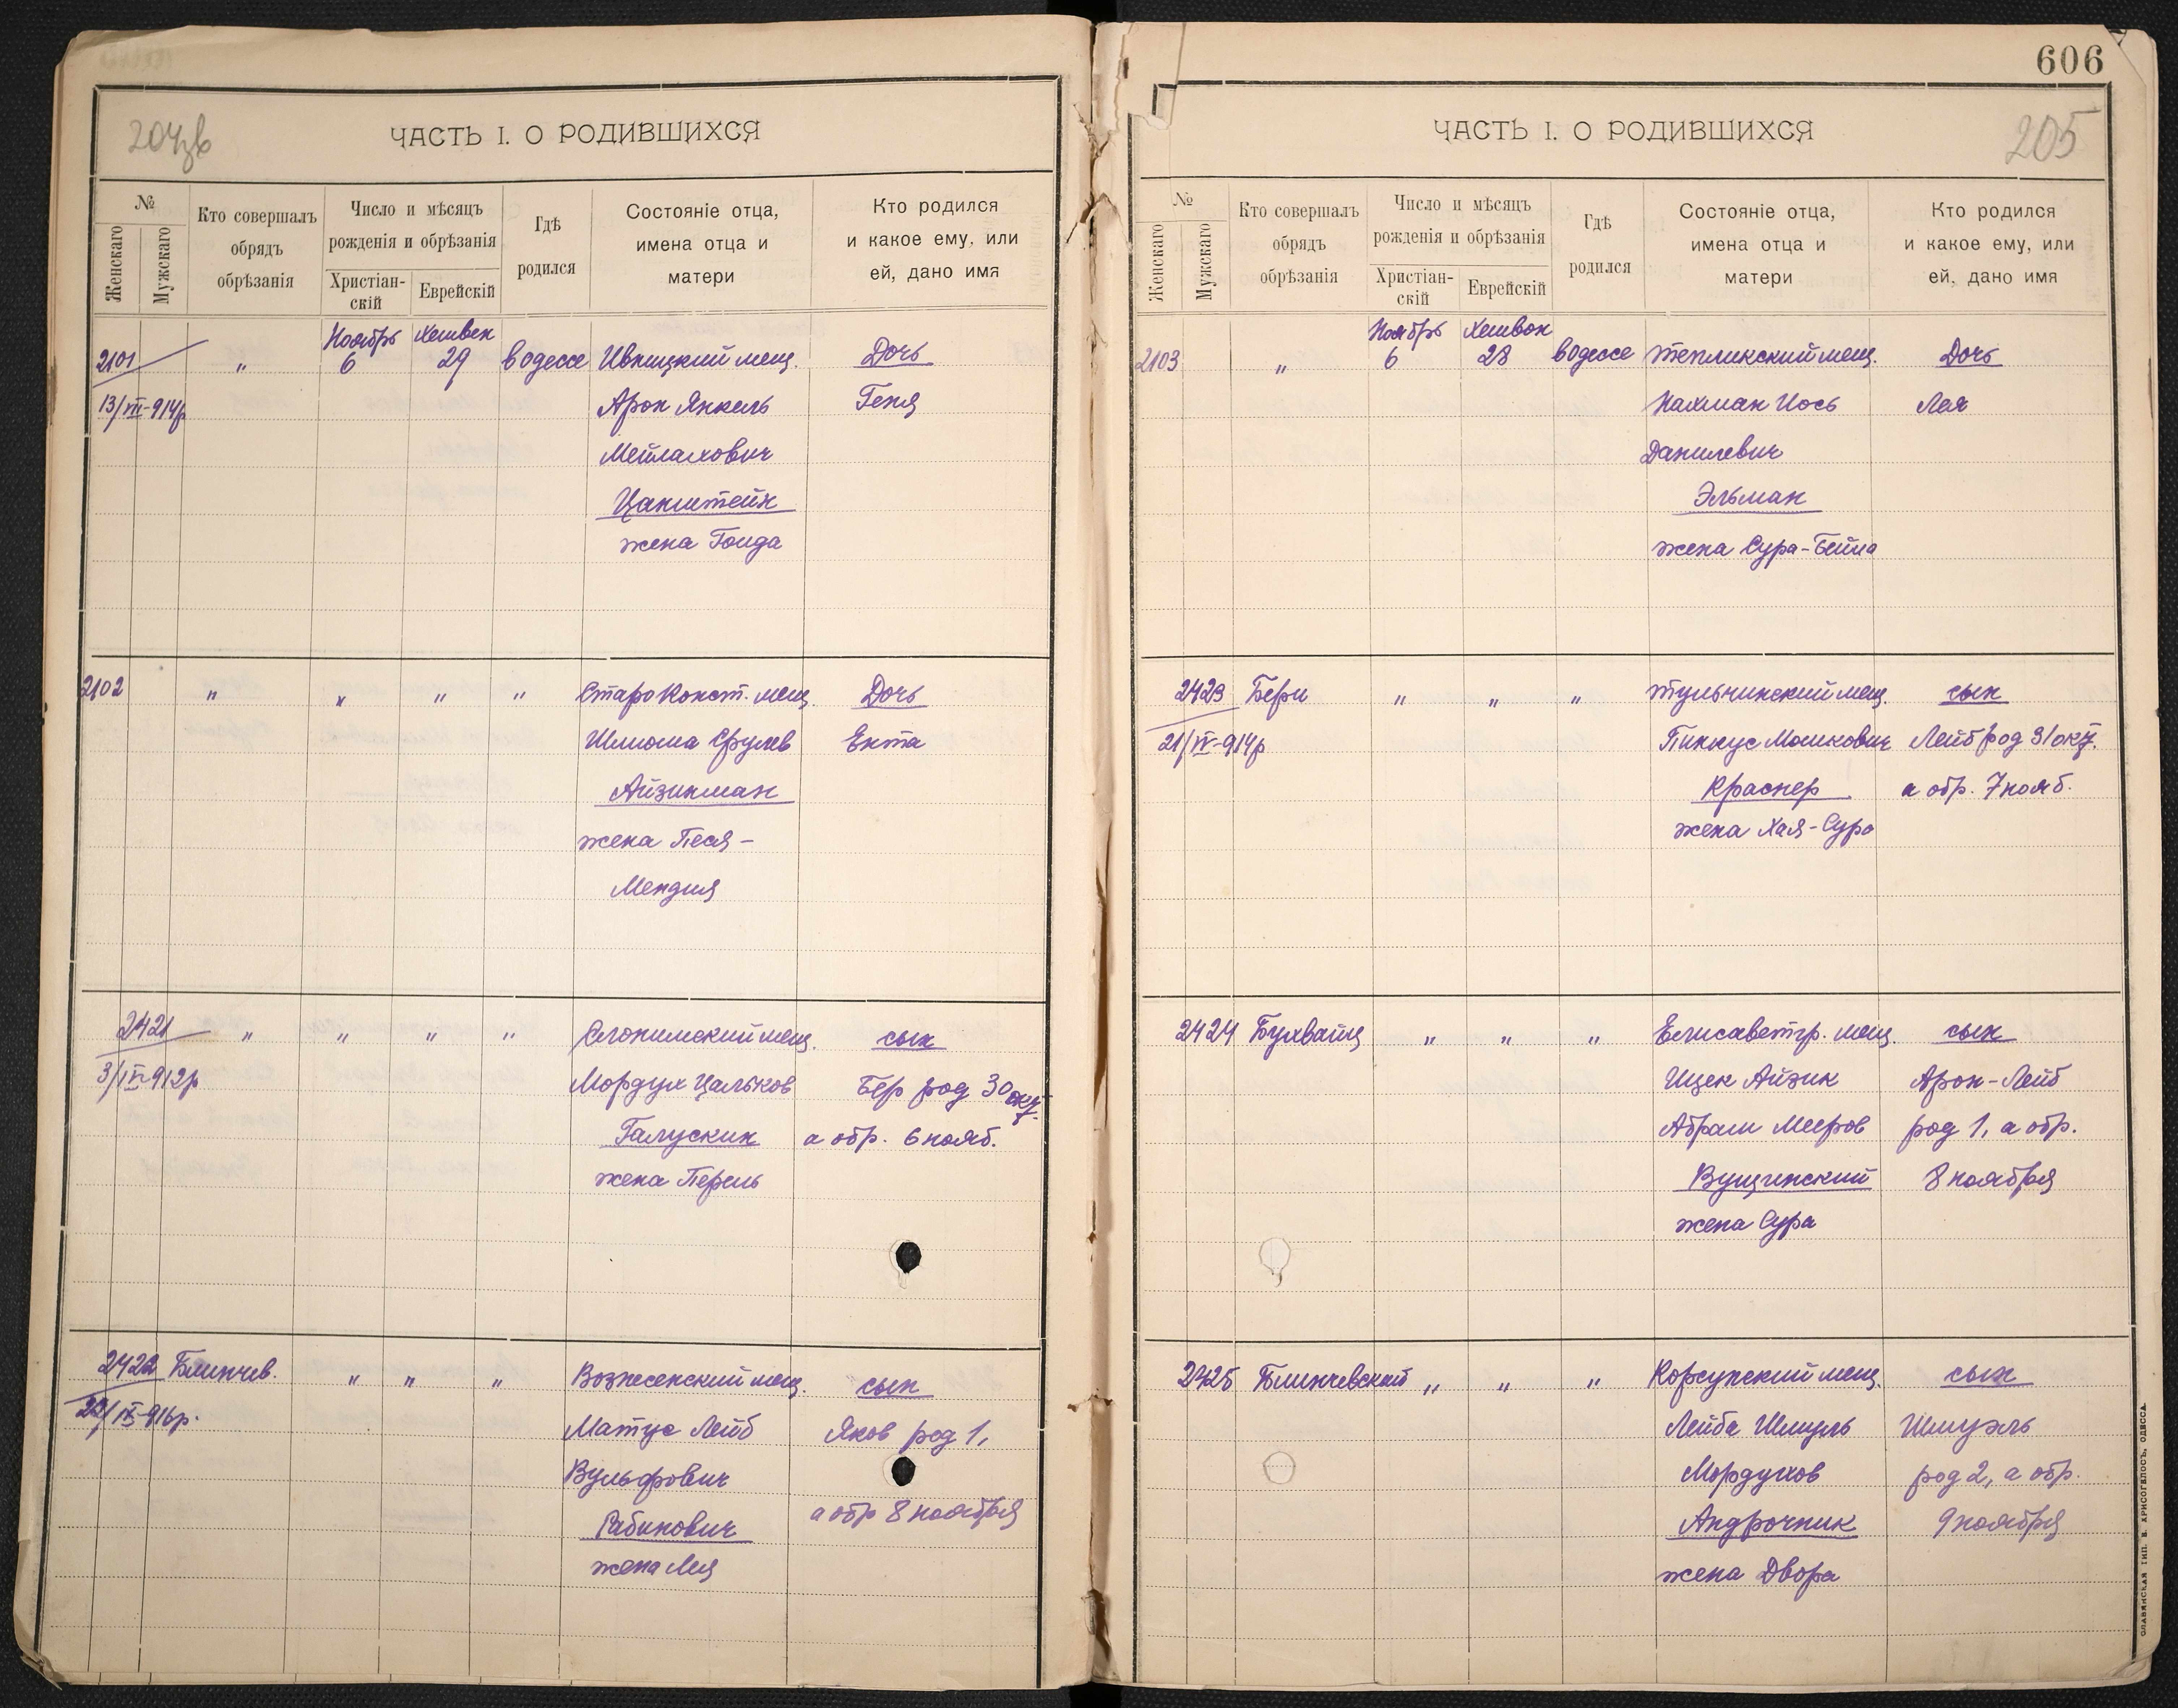 204зв
ЧАСТЬ I. О РОДИВШИХСЯ
№
Женскаго
Мужскаго
Кто совершалъ
обрядъ
обрѣзанія
Число и мѣсяцъ
рожденія и обрѣзанія
Христіан-
скій
Еврейскій
Гдѣ
родился
Состояніе отца,
имена отца и
матери
Кто родился
и какое ему, или
ей, дано имя
Ноябрь Хешвен
2101 " 6 29 в Одессе Ивницкий мещ. Дочь
13/VII-914р Арон Янкель Геня
Мейлахович
Цанштейн
жена Гоида
2102 " " " " СтароКонст. мещ. Дочь
Шлиома Срулев Ента
Айзинман
жена Песя-
Мендля
2421 " " " " Слонимский мещ. сын
3/IX-912р Мордух Цальков Бер род 30 окт.
Галускин а обр. 6 нояб.
жена Перель
2422 Блинчев. " " " Вознесенский мещ. сын
22/IX-916р. Матус Лейб Яков род 1,
Вульфович
Рабинович а обр 8 ноября
жена Лея
606
ЧАСТЬ I. О РОДИВШИХСЯ
205
№
Женскаго
Мужскаго
Кто совершалъ
обрядъ
обрѣзанія
Число и мѣсяцъ
рожденія и обрѣзанія
Христіан-
скій
Еврейскій
Гдѣ
родился
Состояніе отца,
имена отца и
матери
Кто родился
и какое ему, или
ей, дано имя
Ноябрь Хешвон
2103 " 6 28 в Одессе Тепликский мещ. Дочь
Нахман Иось Лея
Данилевич
Эльман
жена Сура-Бейла
2423 Бери " " " Тульчинский мещ. сын
21/IV-914р Пинкус Мошкович Лейб род 31 окт.
Краснер а обр. 7 нояб.
жена Хая-Сура
2424 Бухвайц " " " Елисаветгр. мещ. сын
Ицек Айзик Арон-Лейб
Абрам Мееров род 1, а обр.
Вущинский 8 ноября
жена Сура
2425 Блинчевский " " " Корсунский мещ. сын
Лейба Шмуль Шмуэль
Мордухов род 2, а обр.
Андрочник 9 ноября
жена Двора
СЛАВЯНСКАЯ ТИП. Н. ХРИСОГЕЛОСЪ, ОДЕССА.